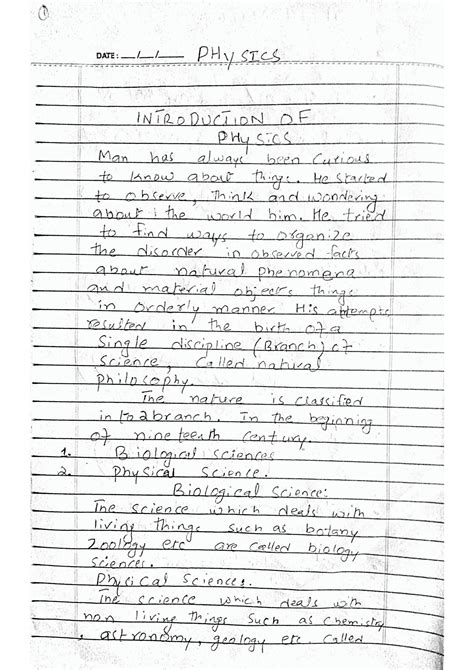 1
DATE: __/__/____ PHYSICS
INTRODUCTION OF
PHYSICS
Man has always been curious
to know about things. He started
to observe, think and wondering
about the world him. He tried
to find ways to organize
the disorder in observed facts
about natural phenomena
and material objects things
in orderly manner. His attempts
resulted in the birth of a
Single discipline (Branch) of
Science, Called natural
philosophy.
The nature is classified
into 2 branch. In the beginning
of nineteenth century.
1. Biological Sciences
2. Physical Science.
Biological Science:
The Science which deals with
living things Such as botany
Zoology etc are called biology
Sciences.
Physical Sciences.
The Science which deals with
non living things Such as Chemistry
, astronomy, geology etc. Called